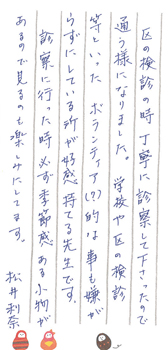 区の検診の時丁寧に診察して下さったので
通う様になりました。学校や区の検診
等といった ボランティア(?)的な事も嫌が
らずにしている所が好感持てる先生です。
診察に行った時必ず季節感ある小物が
あるので見るのも楽しみにしてます。
松井利奈